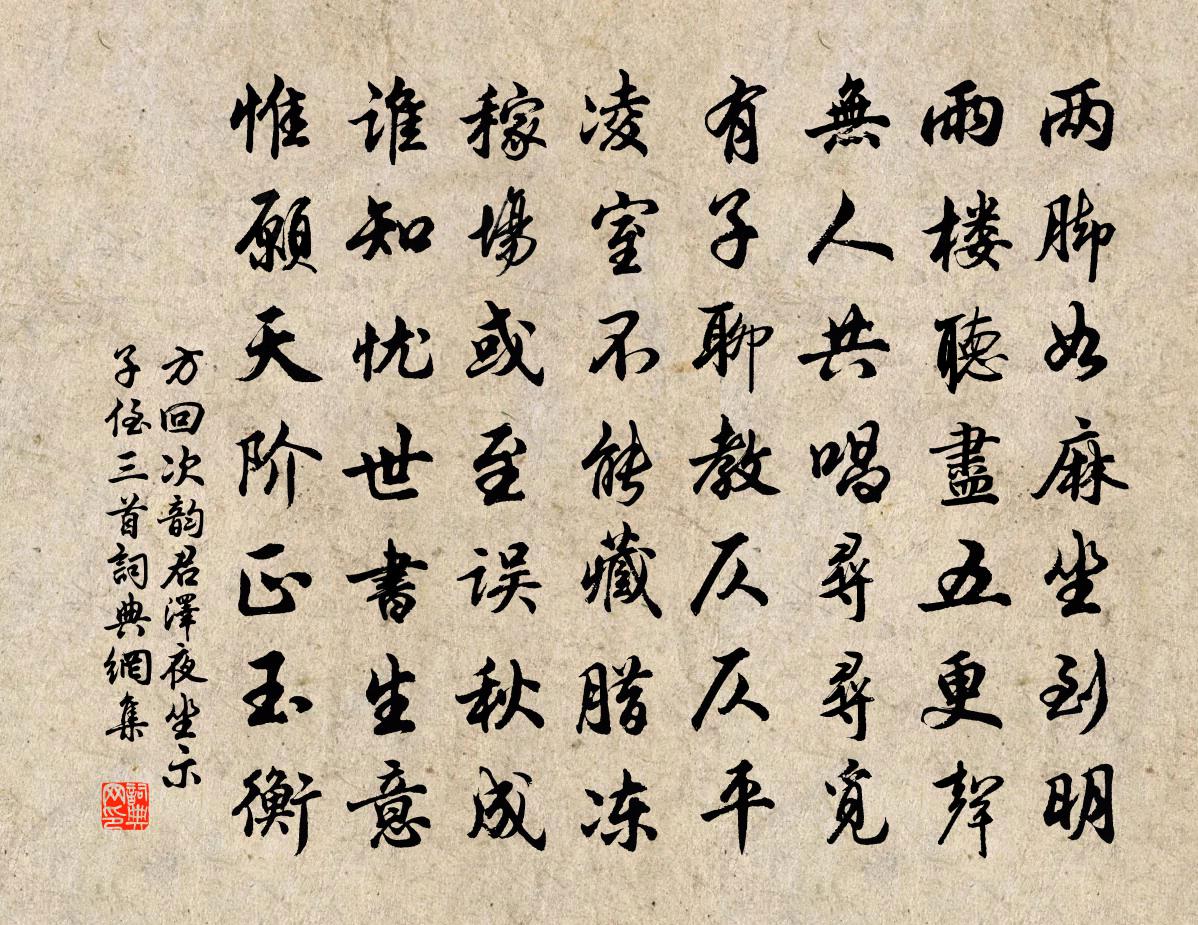 两脚如麻坐到明
雨楼聽盡五更聲
無人共唱尋尋覓
有子聊教仄仄平
凌室不能藏腊冻
稼場或至误秋成
谁知忧世書生意
惟願天阶正玉衡
方回次韵君澤夜坐示
子侄三首詞典網集
詞典
网印